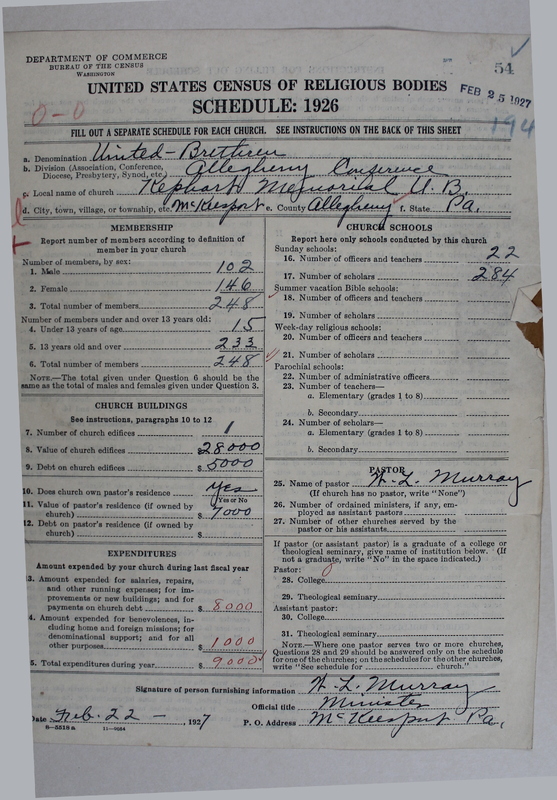 DEPARTMENT OF COMMERCE
BUREAU OF THE CENSUS
WASHINGTON
54
UNITED STATES CENSUS OF RELIGIOUS BODIES
SCHEDULE: 1926
FEB 25 1927
0-0
194
FILL OUT A SEPARATE SCHEDULE FOR EACH CHURCH. SEE INSTRUCTIONS ON THE BACK OF THIS SHEET
a. Denomination United-Brethren
b. Division (Association, Conference, Diocese, Presbytery, Synod, etc.) Allegheny Conference
c. Local name of church Kephart Memorial U.B.
d. City, town, village, or township, etc. McKeesport e. County Allegheny f. State Pa.
MEMBERSHIP
Report number of members according to definition of member in your church
Number of members, by sex:
1. Male 102
2. Female 146
3. Total number of members 248
Number of members under and over 13 years old:
4. Under 13 years of age 15
5. 13 years old and over 233
6. Total number of members 248
NOTE.—The total given under Question 6 should be the same as the total of males and females given under Question 3.
CHURCH BUILDINGS
See instructions, paragraphs 10 to 12
7. Number of church edifices 1
8. Value of church edifices $28000
9. Debt on church edifices $5000
10. Does church own pastor's residence? Yes
Yes or No
11. Value of pastor's residence (if owned by church) $7000
12. Debt on pastor's residence (if owned by church) $
EXPENDITURES
Amount expended by your church during last fiscal year
3. Amount expended for salaries, repairs, and other running expenses; for improvements or new buildings; and for payments on church debt $8000
4. Amount expended for benevolences, including home and foreign missions; for denominational support; and for all other purposes $1000
5. Total expenditures during year $9000
CHURCH SCHOOLS
Report here only schools conducted by this church
Sunday schools:
16. Number of officers and teachers 22
17. Number of scholars 284
Summer vacation Bible schools:
18. Number of officers and teachers
19. Number of scholars
Week-day religious schools:
20. Number of officers and teachers
21. Number of scholars
Parochial schools:
22. Number of administrative officers
23. Number of teachers—
a. Elementary (grades 1 to 8)
b. Secondary
24. Number of scholars—
a. Elementary (grades 1 to 8)
b. Secondary
PASTOR
25. Name of pastor W. L. Murray
(If church has no pastor, write "None")
26. Number of ordained ministers, if any, employed as assistant pastors
27. Number of other churches served by the pastor or his assistants
If pastor (or assistant pastor) is a graduate of a college or theological seminary, give name of institution below. (If not a graduate, write "No" in the space indicated.)
Pastor:
28. College 0
29. Theological seminary
Assistant pastor:
30. College
31. Theological seminary
NOTE.—Where one pastor serves two or more churches, Questions 28 and 29 should be answered only on the schedule for one of the churches; on the schedules for the other churches, write "See schedule for church."
Signature of person furnishing information W. L. Murray
Official title Minister
Date Feb. 22 - , 1927
P. O. Address McKeesport Pa.
8—5518a 11—9684